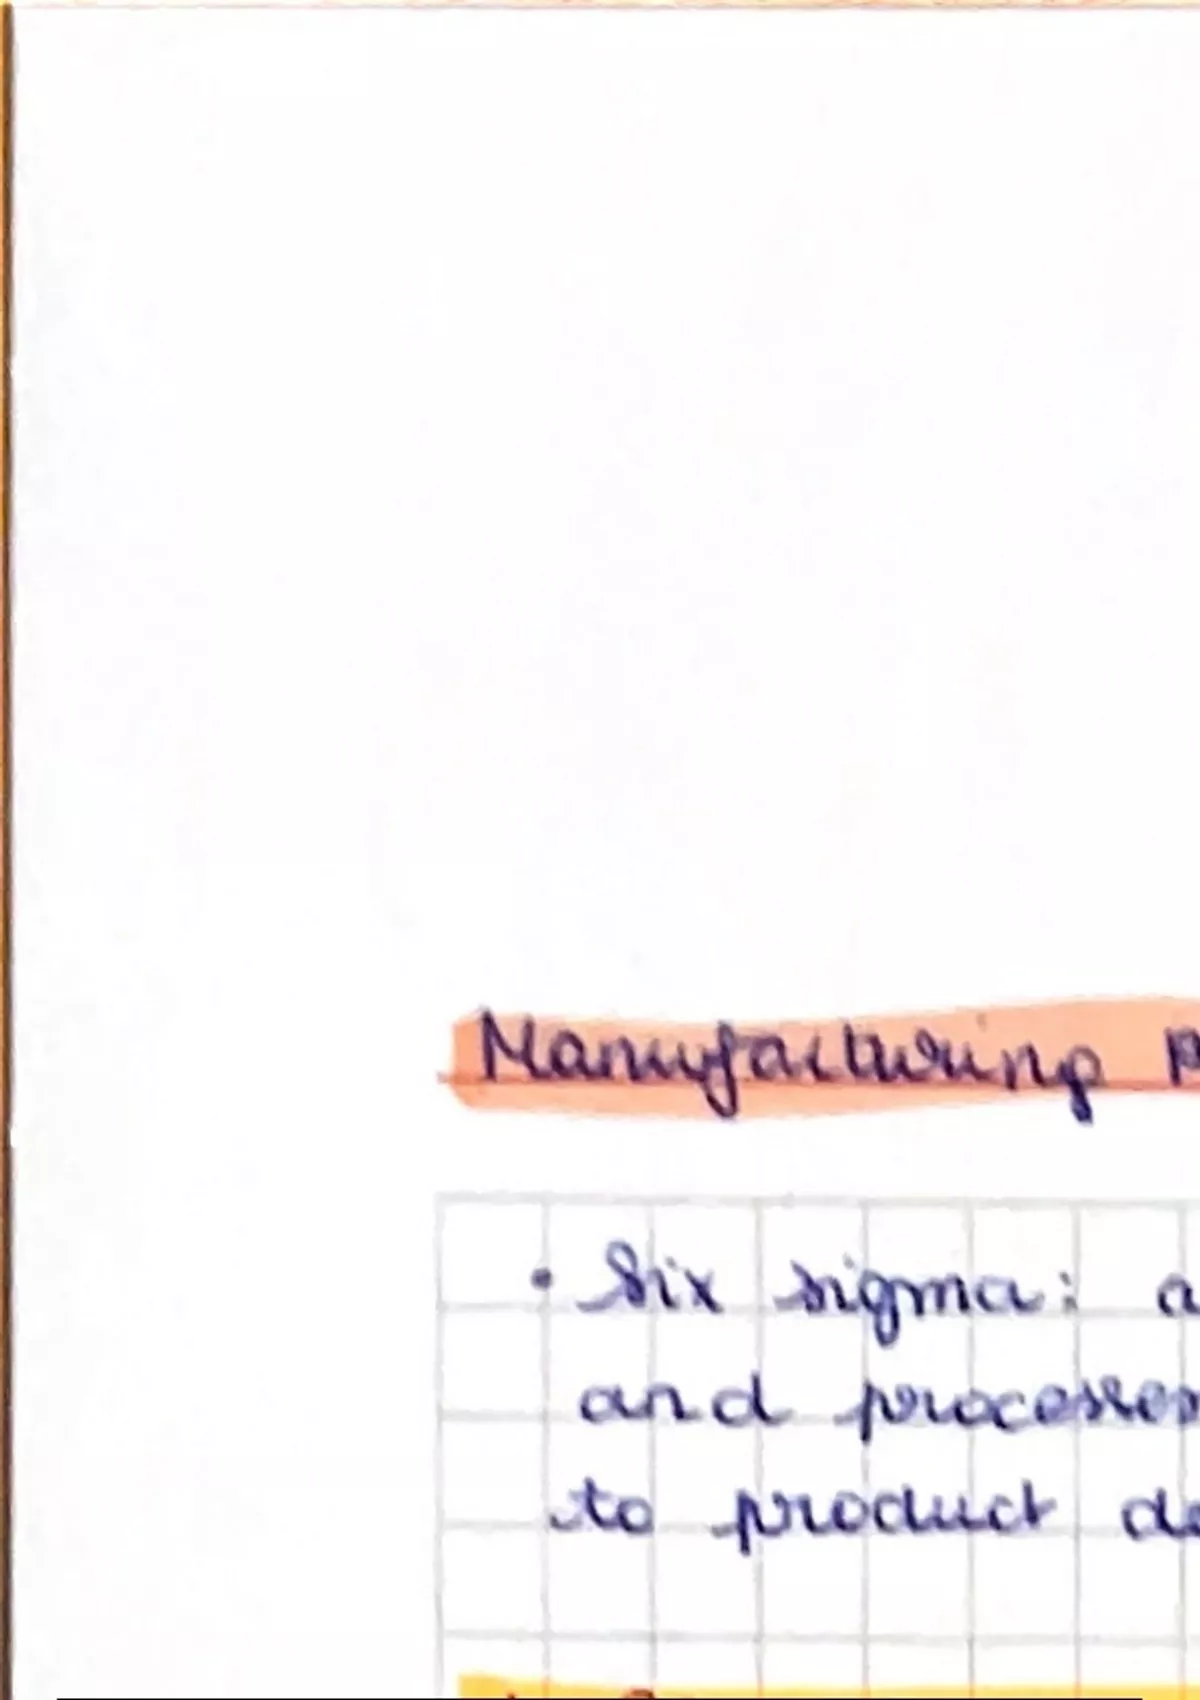 Manufacturing
• Six sigma: a
and processes
to product de